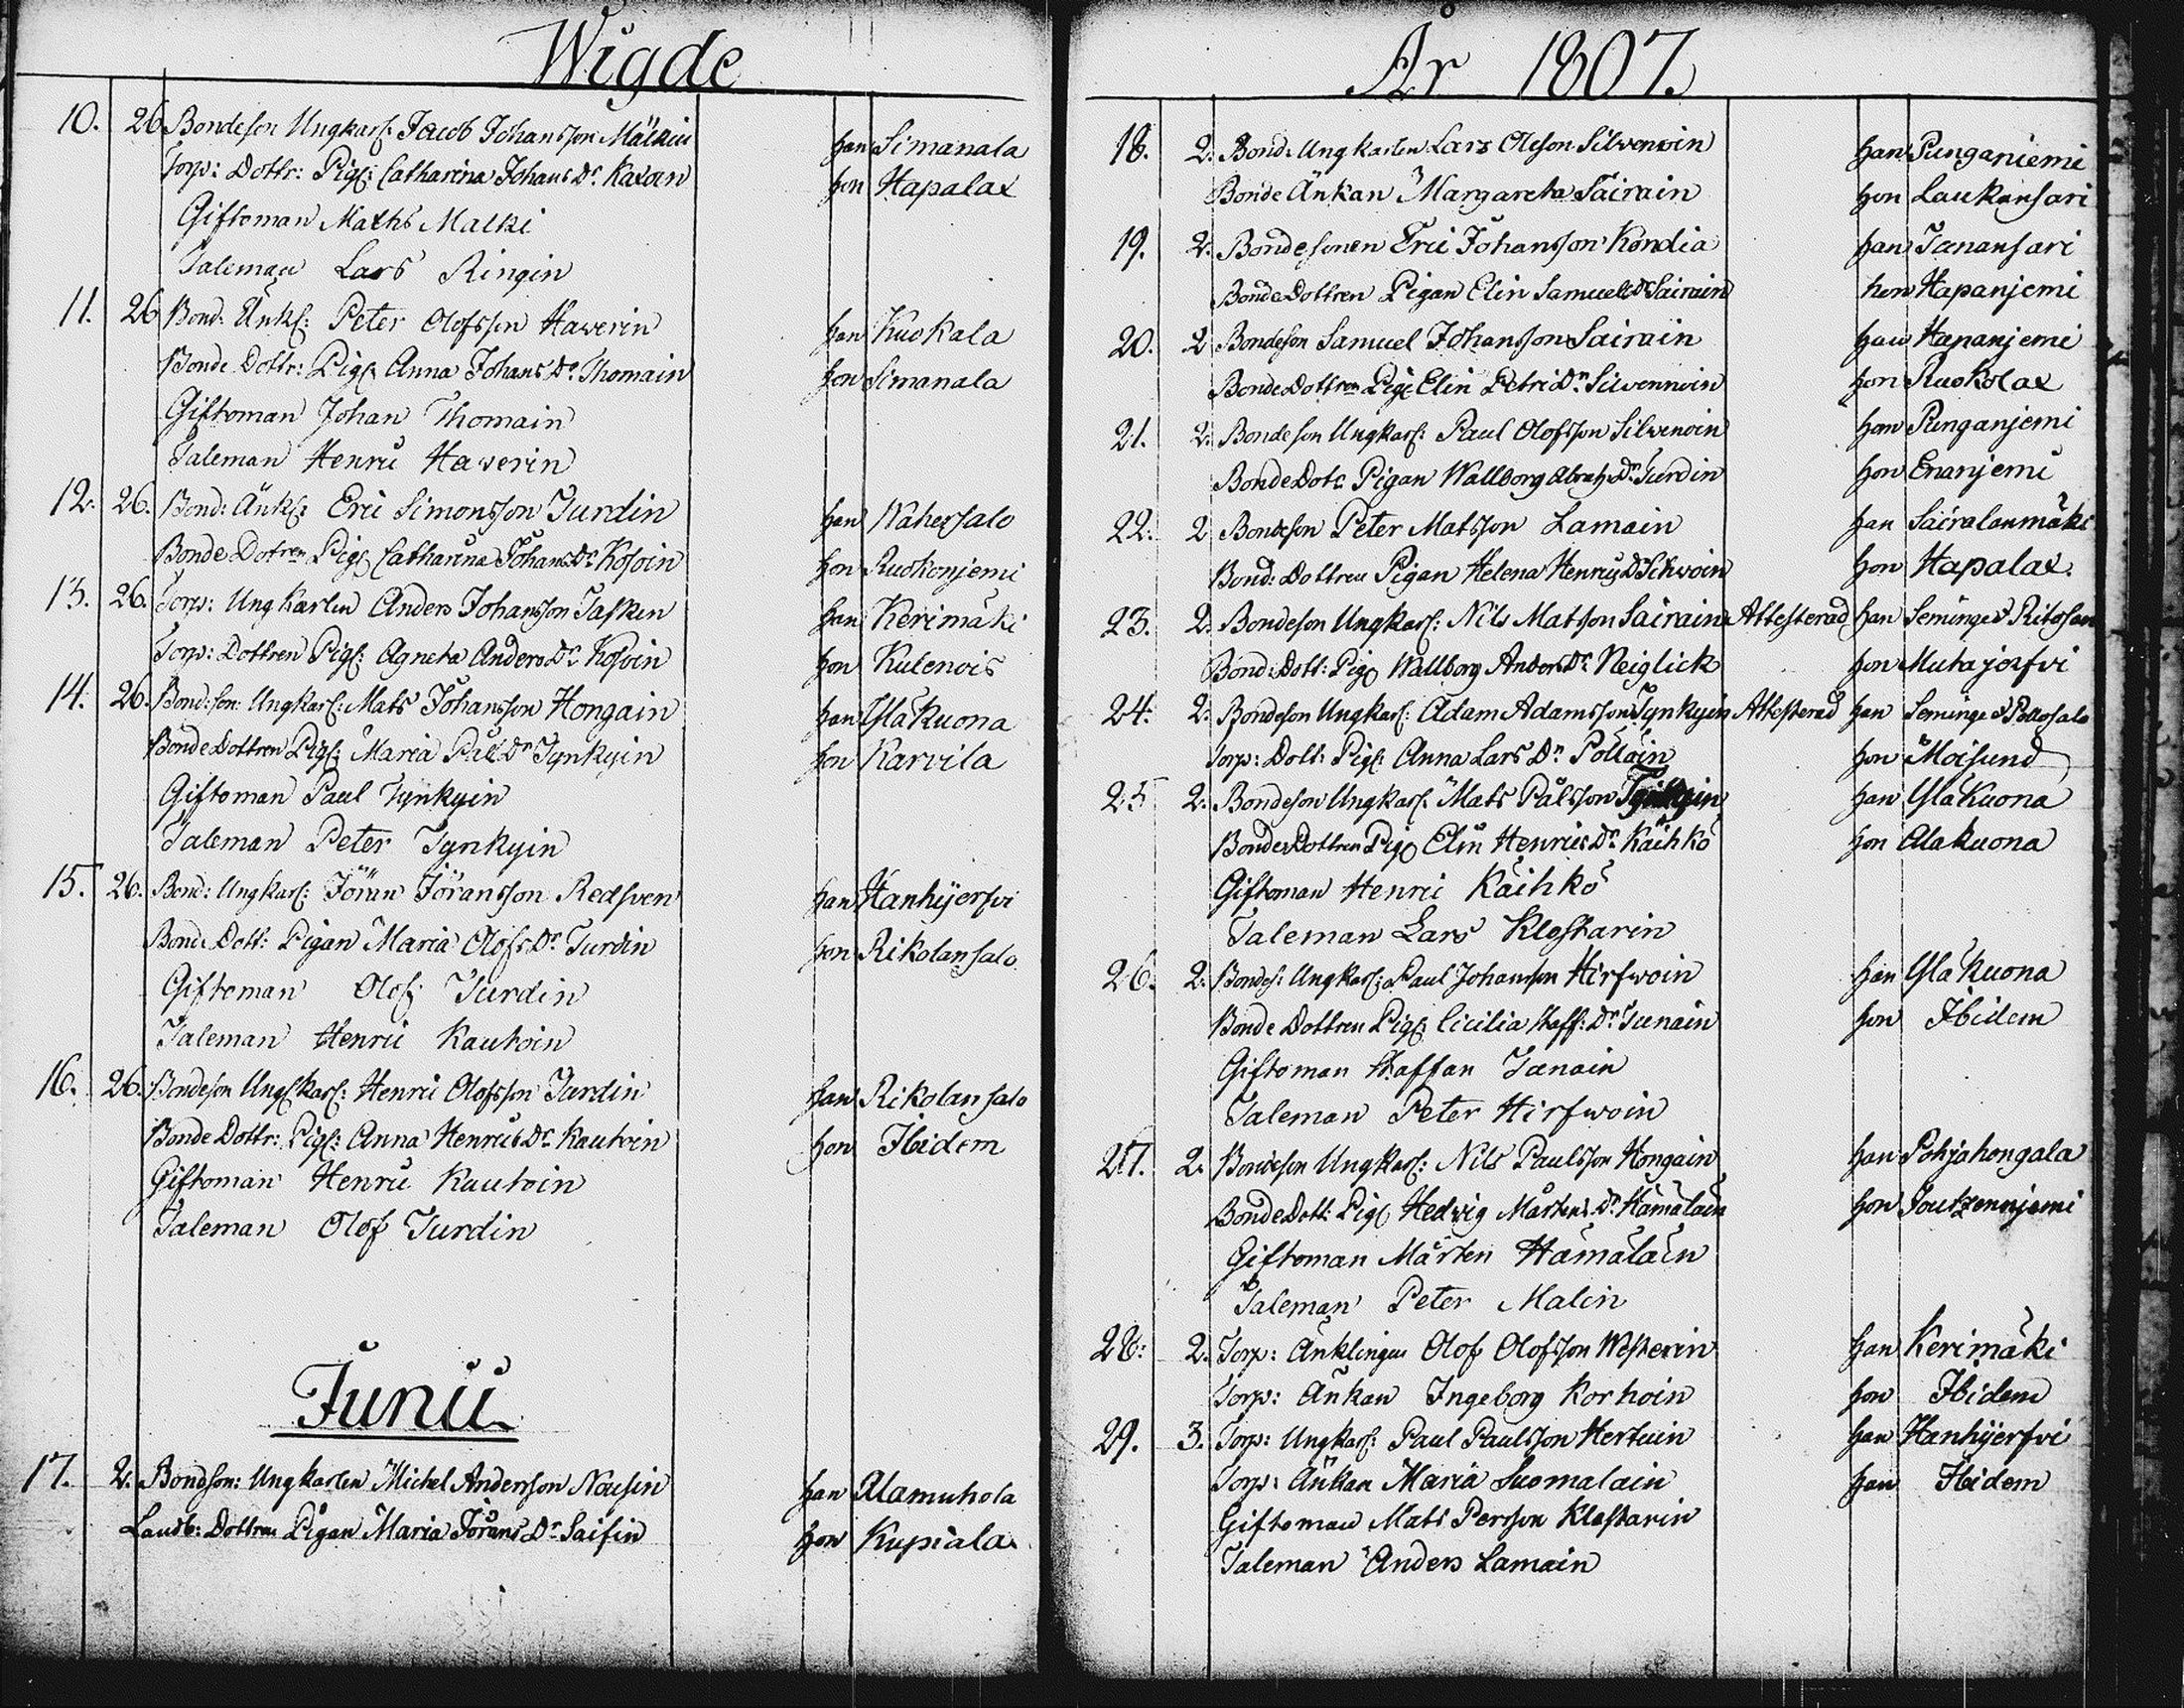 Wigde
10. 26 Bondeson Ungkarl: Jacob Johansson Mälkin han Simanala
Torp: Dottr: Pig: Catharina Johans Dr. Kaxoin hon Hapalax
Giftoman Maths Malki
Taleman Lars Ringin
11. 26 Bond. Änkl: Peter Olofsson Haverin han Kuokala
Bonde Dottr: Pig: Anna Johans Dr. Thomain hon Simanala
Giftoman Johan Thomain
Taleman Henric Haverin
12. 26. Bond: Änkl: Eric Simonsson Turdin han Wahersalo
Bonde Dotren Pig: Catharina Johans Dr. Kosoin hon Ruokonjemi
13. 26. Torp: Ungkarlen Anders Johansson Tasken han Kerimäki
Torp: Dottren Pig: Agneta Anders Dr. Kosoin hon Kulenois
14. 26. Bond:son: Ungkarl: Mats Johansson Hongain han Ylä Kuona
Bonde Dottren Pig: Maria Påls Dr Tynkyin hon Karvila
Giftoman Paul Tynkyin
Taleman Peter Tynkyin
15. 26. Bond: Ungkarl: Jöran Jöransson Redsven han Hanhijerfvi
Bond. Dott: Pigan Maria Olofs Dr. Turdin hon Rikolansalo
Giftoman Olof Turdin
Taleman Henric Kautoin
16. 26. Bondeson Ungkarl: Henric Olofsson Turdin han Rikolansalo
Bonde Dottr: Pig: Anna Henrics Dr. Kautoin hon Ibidem
Giftoman Henric Kautoin
Taleman Olof Turdin
Junii
17. 2. Bondson: Ungkarlen Michel Andersson Nousin han Alamuhola
Landb: Dottren Pigan Maria Jörans Dr. Saifin hon Kupiala
År 1807.
18. 2. Bond. Ungkarlen Lars Oleson Silvenoin han Punganiemi
Bonde Änkan Margareta Sairain hon Laukansari
19. 2. Bondesonen Eric Johansson Kondia han Tanansari
Bonde Dottren Pigan Elin Samuels Dr Sairain hon Hapanjemi
20. 2 Bondeson Samuel Johansson Sairain han Hapanjemi
Bonde Dottren Pig: Elin Petri Dr. Silvennoin hon Ruokolax
21. 2. Bondeson Ungkarl: Paul Olofsson Silvenoin han Punganjemi
Bonde Dotr Pigan Wallborg Abrah: Dr. Turdin hon Enanjemi
22. 2 Bondeson Peter Matsson Lamain han Sairalanmäki
Bond: Dottren Pigan Helena Henrics Dr hon Hapalax.
23. 2. Bondeson Ungkarl: Nils Matsson Sairain Attesterad han Seminge &
Bond: Dott: Pig: Wallborg Anders Dr. Neiglick hon Muhajerfvi
24. 2. Bondeson Ungkarl: Adam Adamsson Tynkyin Attesterad han Seminge &
Torp: Dott: Pig: Anna Lars Dr Polloin hon Moisund
25 2. Bondeson Ungkarl: Mats Pålsson Tynkyin han Ylä Kuona
Bonde Dottren Pig: Elin Henrics Dr. Käihkö hon Ala Kuona
Giftoman Henric Käihkö
Taleman Lars Klostarin
26. 2. Bondes: Ungkarl: Paul Johansson Hirfwoin han Ylä Kuona
Bonde Dottren Pig: Cicilia Staff: Dr. Tanain hon Ibidem
Giftoman Staffan Tanain
Taleman Peter Hirfwoin
27. 2. Bondeson Ungkarl: Nils Paulsson Hongain han Pohjahongala
Bonde Dott: Pig: Hedvig Mårtens Dr. Hämäläin hon Joutzennjemi
Giftoman Mårten Hämäläin
Taleman Peter Malin
28. 2. Torp: Änklingen Olof Olofsson Westerin han Kerimäki
Torp: Änkan Ingeborg Korhoin hon Ibidem
29. 3. Torp: Ungkarl: Paul Paulsson Hertuin han Hanhijerfvi
Torp: Änkan Maria Suomalain han Ibidem
Giftoman Mats Persson Klostarin
Taleman Anders Lamain